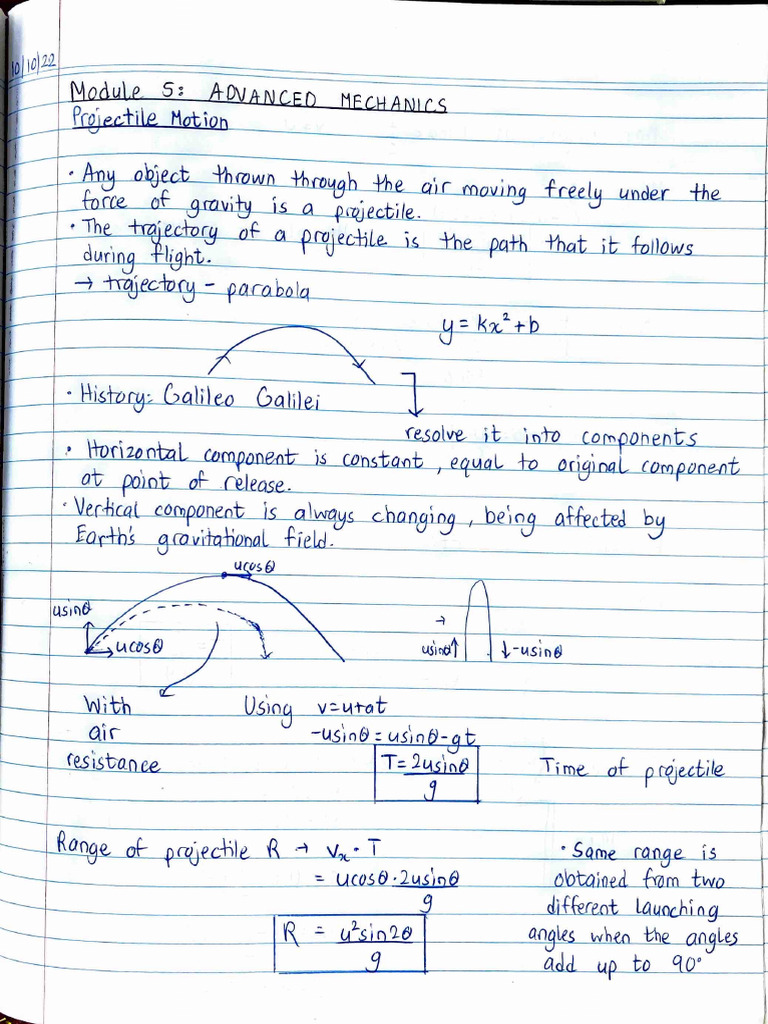 10/10/22
Module 5: ADVANCED MECHANICS
Projectile Motion
• Any object thrown through the air moving freely under the
force of gravity is a projectile.
• The trajectory of a projectile is the path that it follows
during flight.
→ trajectory - parabola
y = kx² + b
• History: Galileo Galilei
resolve it into components
• Horizontal component is constant, equal to original component
at point of release.
• Vertical component is always changing, being affected by
Earth's gravitational field.
ucosθ
usinθ
ucosθ
→
usinθ↑
↓-usinθ
With
air
resistance
Using v=u+at
-usinθ = usinθ-gt
T = 2usinθ
g
Time of projectile
Range of projectile R → vₓ · T
= ucosθ · 2usinθ
g
R = u²sin2θ
g
• Same range is
obtained from two
different launching
angles when the angles
add up to 90°